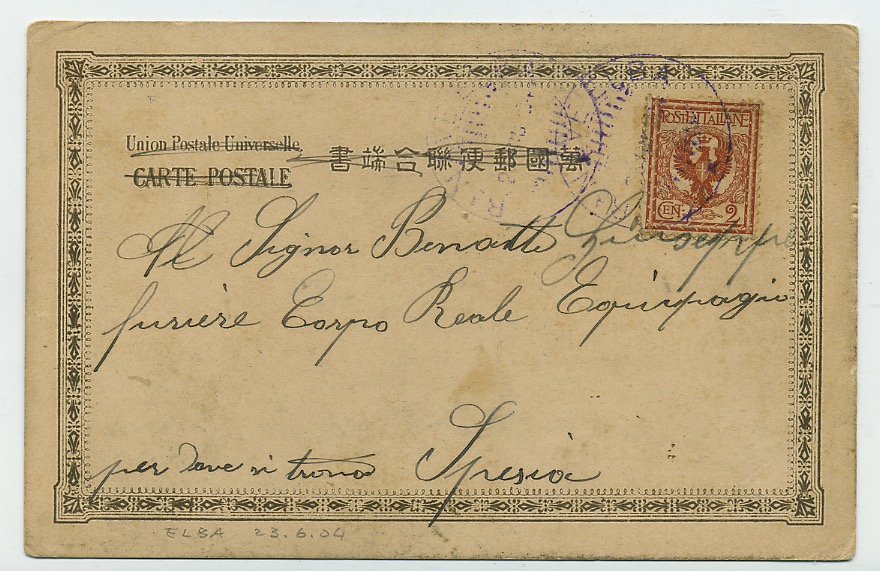 POSTE ITALIANE
CEN- 2
Union Postale Universelle
書端合聯便郵國萬
CARTE POSTALE
Al Signor Benatti Giuseppe
furière Corpo Reale Equipagio
per dove si trova Spesia
ELBA 23.6.04